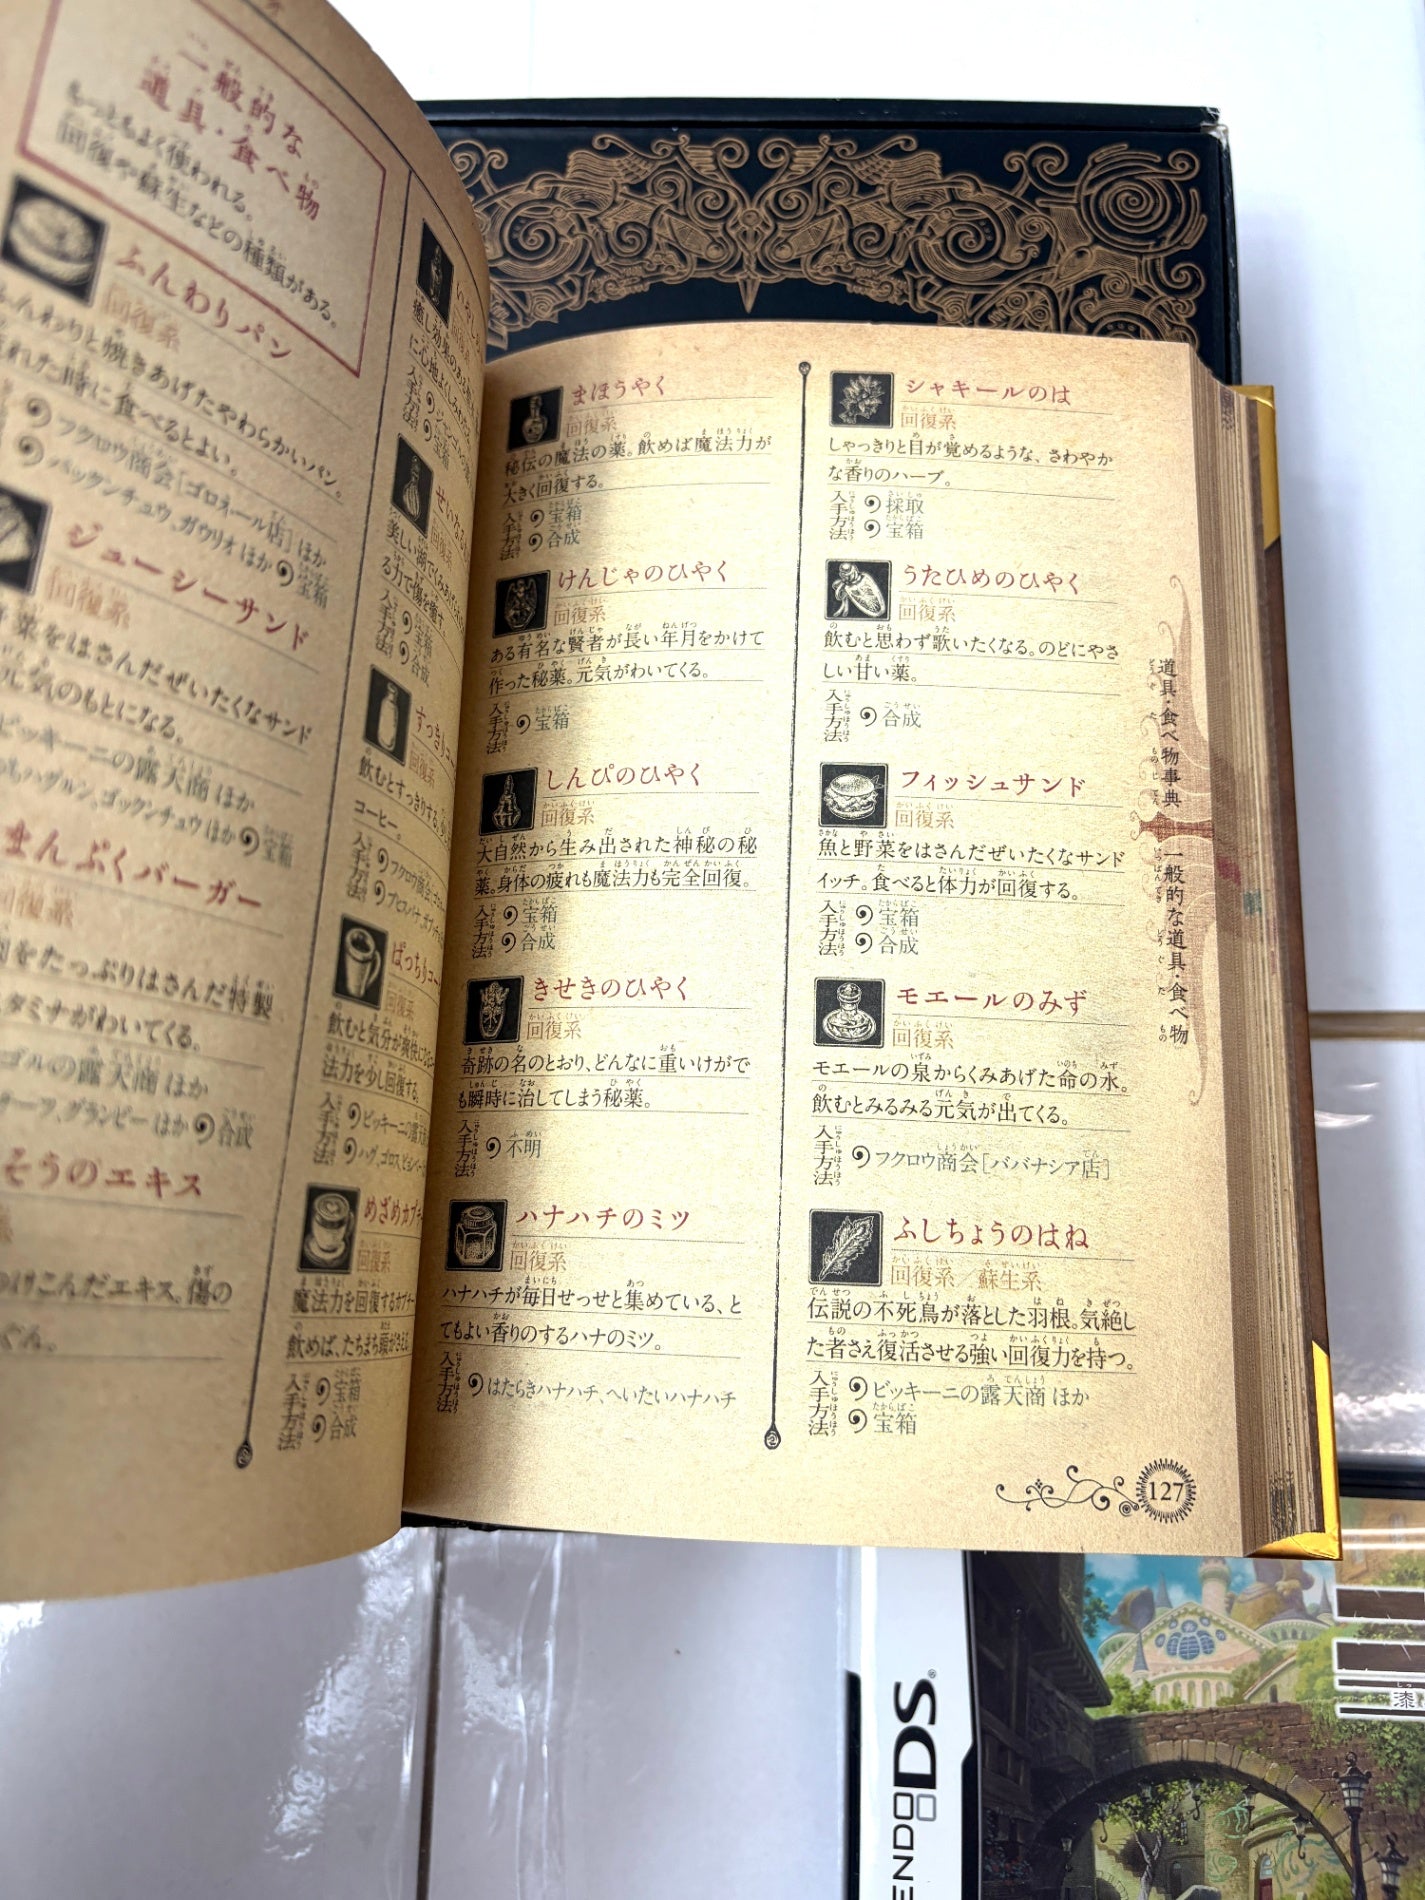 一般的な
道具・食べ物
もっともよく使われる。
回復や蘇生などの種類がある。
ふんわりパン
回復系
ふんわりと焼きあげたやわらかいパン。
れた時に食べるとよい。
フクロウ商会[ゴロネール店]ほか
バッケンチュウ、ガウリオ ほか 宝箱
ジューシーサンド
回復系
菜をはさんだぜいたくなサンド
元気のもとになる。
ビッキーニの露天商 ほか
ハグルン、ゴックンチュウ ほか 宝箱
まんぷくバーガー
回復系
をたっぷりはさんだ特製
タミナがわいてくる。
ゴルの露天商 ほか
ーフ、グランビー ほか 合成
そうのエキス
けこんだエキス。傷の
ぐん。
癒し効果のある
に心地よく
入手方法
宝箱
せいな
回復系
美しい湖でくみあげ
る力で傷を癒す。
入手方法
宝箱
合成
すっきりコ
回復系
飲むとすっきりする
コーヒー。
入手方法
フクロウ商会
ばっちりコー
回復系
飲むと気分が爽快に
法力を少し回復する。
入手方法
ビッキーニの露天
めざめカプチー
回復系
魔法力を回復するカプチー
飲めば、たちまち頭がさえる。
入手方法
宝箱
合成
まほうやく
回復系
秘伝の魔法の薬。飲めば魔法力が
大きく回復する。
入手方法
宝箱
合成
けんじゃのひやく
回復系
ある有名な賢者が長い年月をかけて
作った秘薬。元気がわいてくる。
入手方法
宝箱
しんぴのひやく
回復系
大自然から生み出された神秘の秘
薬。身体の疲れも魔法力も完全回復。
入手方法
宝箱
合成
きせきのひやく
回復系
奇跡の名のとおり、どんなに重いけがで
も瞬時に治してしまう秘薬。
入手方法
不明
ハナハチのミツ
回復系
ハナハチが毎日せっせと集めている、と
てもよい香りのするハナのミツ。
入手方法
はたらきハナハチ、へいたいハナハチ
シャキールのは
回復系
しゃっきりと目が覚めるような、さわやか
な香りのハーブ。
入手方法
採取
宝箱
うたひめのひやく
回復系
飲むと思わず歌いたくなる。のどにやさ
しい甘い薬。
入手方法
合成
フィッシュサンド
回復系
魚と野菜をはさんだぜいたくなサンド
イッチ。食べると体力が回復する。
入手方法
宝箱
合成
モエールのみず
回復系
モエールの泉からくみあげた命の水。
飲むとみるみる元気が出てくる。
入手方法
フクロウ商会[ババナシア店]
ふしちょうのはね
回復系／蘇生系
伝説の不死鳥が落とした羽根。気絶し
た者さえ復活させる強い回復力を持つ。
入手方法
ビッキーニの露天商 ほか
宝箱
道具・食べ物事典 一般的な道具・食べ物
127
ENDO DS
漆